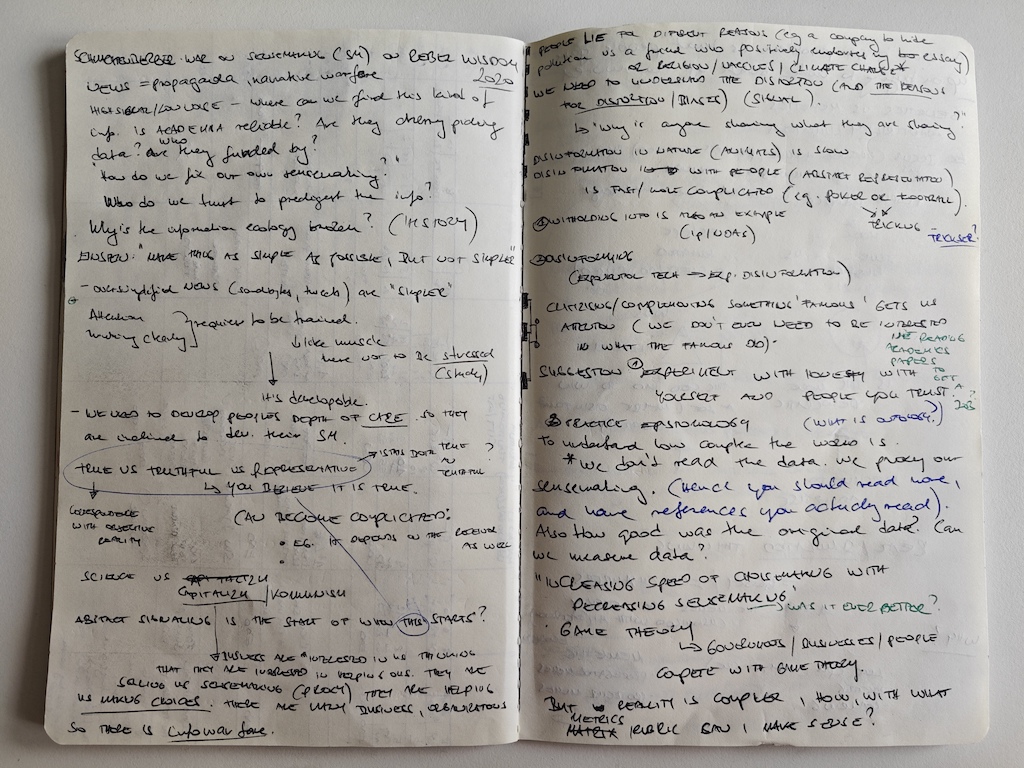 SCHMACHTENBERGER: WAR ON SENSEMAKING (SM) ON REBEL WISDOM
NEWS = propaganda, narrative warfare 2020
HIGH SIGNAL/LOW NOISE – where can we find this kind of
info. Is ACADEMIA reliable? Are they cherry picking
data? Who are they funded by?
"How do we fix our own sensemaking?"
Who do we trust to predigest the info?
Why is the information ecology broken? (HISTORY)
EINSTEIN: "MAKE THINGS AS SIMPLE AS POSSIBLE, BUT NOT SIMPLER"
– oversimplified NEWS (soundbytes, tweets) are "SIMPLER"
Attention
thinking clearly } requires to be trained.
↓ like muscle
have not to be stressed
(study)
it's developable.
– WE NEED TO DEVELOP PEOPLE'S DEPTH OF CARE. SO THEY
are inclined to dev. their SM.
TRUE VS TRUTHFUL VS REPRESENTATIVE → IS THIS BOTH TRUE AND TRUTHFUL ?
↳ YOU BELIEVE IT IS TRUE.
CORRESPONDENCE
WITH OBJECTIVE
REALITY
CAN BECOME COMPLICATED:
• EG. IT DEPENDS ON THE RECEIVER
AS WELL
•
SCIENCE VS CAPITALISM/KOMUNISM
ABSTRACT SIGNALING IS THE START OF WHEN THIS STARTS?
BUSINESS ARE "INTERESTED IN US THINKING
THAT THEY ARE INTERESTED IN HELPING US. THEY ARE
SELLING US SENSEMAKING (PROXY) THEY ARE HELPING
US MAKING CHOICES. THERE ARE MANY BUSINESS, ORGANIZATIONS
SO THERE IS infowarfare.
PEOPLE LIE FOR DIFFERENT REASONS (eg a company to hide
pollution vs a friend who positively endorses my essay)
OR RELIGION/VACCINES/CLIMATE CHANGE*
WE NEED TO UNDERSTAND THE DISTORTION (AND THE REASONS
FOR DISTORTION/BIASES) (SIGNAL).
↳ "Why is anyone sharing what they are sharing?"
DISINFORMATION IN NATURE (ANIMALS) IS SLOW
DISINFORMATION WITH PEOPLE (ABSTRACT REPRESENTATION)
IS FAST/MORE COMPLICATED (eg. POKER OR FOOTBALL).
TRICKING – TRICKSTER?
① WITHOLDING INFO IS ALSO AN EXAMPLE
(IP/NDAS)
② DISINFORMING
(EXPONENTIAL TECH → EXP. DISINFORMATION)
CRITIZISING/COMPLIMENTING SOMETHING 'FAMOUS' GETS US
ATTENTION (WE DON'T EVEN NEED TO BE INTERESTED
IN WHAT THE FAMOUS DO).
LIKE READING
ACADEMICS
PAPERS
TO
GET
A
JOB ?
SUGGESTION ① EXPERIMENT WITH HONESTY WITH
YOURSELF AND PEOPLE YOU TRUST.
② PRACTICE EPISTEMOLOGY (WHAT IS ONTOLOGY?)
To understand how complex the world is.
*We don't read the data. We proxy our
sensemaking. (Hence you should read more,
and have references you actually read).
Also How good was the original data? Can
we measure data?
"INCREASING SPEED OF CHOICEMAKING WITH
DECREASING SENSEMAKING" → WAS IT EVER BETTER?
· GAME THEORY
↳ GOVERNMENTS/BUSINESSES/PEOPLE
COMPETE WITH GAME THEORY.
BUT REALITY IS COMPLEX, HOW, WITH WHAT
METRICS RUBRIC CAN I MAKE SENSE?